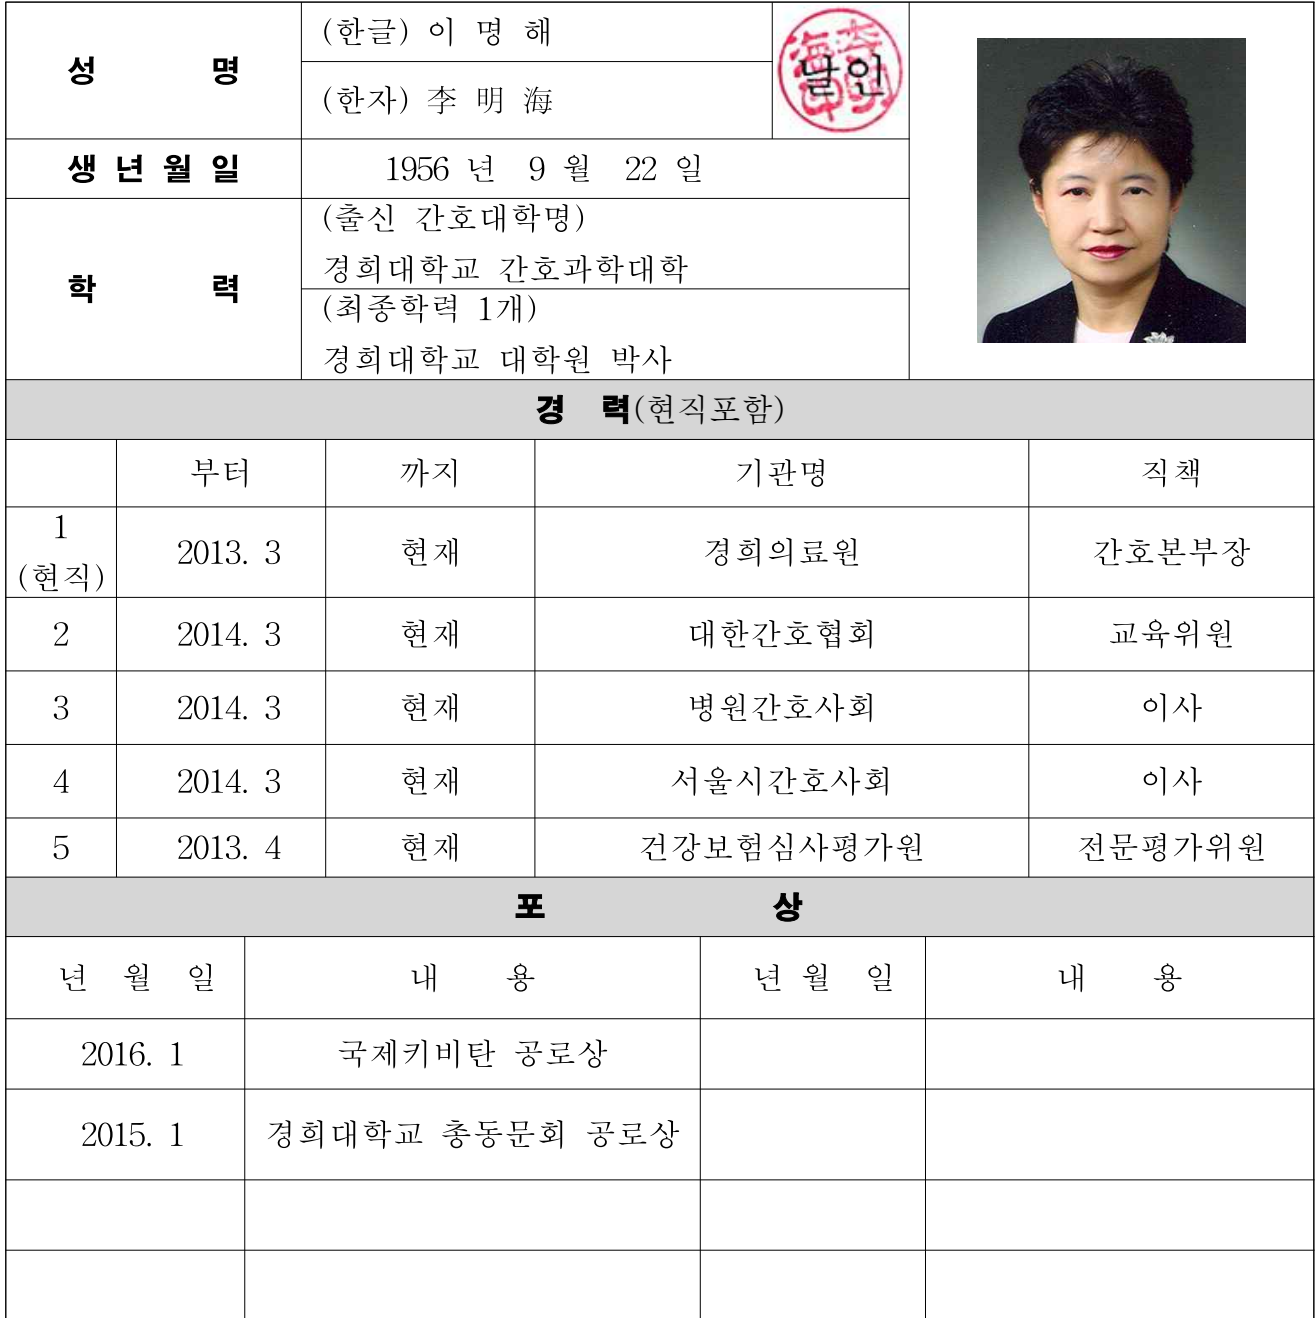 성 명
(한글) 이 명 해
(한자) 李 明 海
날인
생 년 월 일
1956 년 9 월 22 일
학 력
(출신 간호대학명)
경희대학교 간호과학대학
(최종학력 1개)
경희대학교 대학원 박사
경 력(현직포함)
부터 까지 기관명 직책
1
(현직) 2013. 3 현재 경희의료원 간호본부장
2 2014. 3 현재 대한간호협회 교육위원
3 2014. 3 현재 병원간호사회 이사
4 2014. 3 현재 서울시간호사회 이사
5 2013. 4 현재 건강보험심사평가원 전문평가위원
포 상
년 월 일 내 용 년 월 일 내 용
2016. 1 국제키비탄 공로상
2015. 1 경희대학교 총동문회 공로상